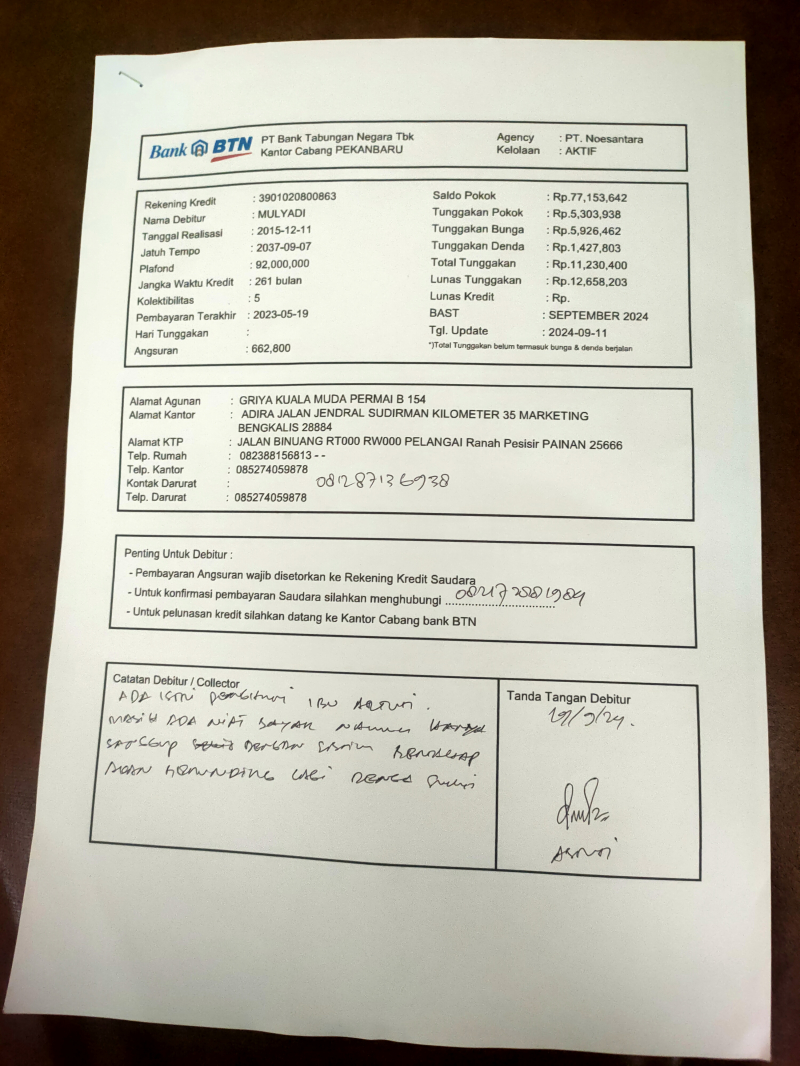 Bank BTN
PT Bank Tabungan Negara Tbk
Kantor Cabang PEKANBARU
Agency : PT. Noesantara
Kelolaan : AKTIF
Rekening Kredit : 3901020800863
Nama Debitur : MULYADI
Tanggal Realisasi : 2015-12-11
Jatuh Tempo : 2037-09-07
Plafond : 92,000,000
Jangka Waktu Kredit : 261 bulan
Kolektibilitas : 5
Pembayaran Terakhir : 2023-05-19
Hari Tunggakan :
Angsuran : 662,800
Saldo Pokok : Rp.77,153,642
Tunggakan Pokok : Rp.5,303,938
Tunggakan Bunga : Rp.5,926,462
Tunggakan Denda : Rp.1,427,803
Total Tunggakan : Rp.11,230,400
Lunas Tunggakan : Rp.12,658,203
Lunas Kredit : Rp.
BAST : SEPTEMBER 2024
Tgl. Update : 2024-09-11
*)Total Tunggakan belum termasuk bunga & denda berjalan
Alamat Agunan : GRIYA KUALA MUDA PERMAI B 154
Alamat Kantor : ADIRA JALAN JENDRAL SUDIRMAN KILOMETER 35 MARKETING
BENGKALIS 28884
Alamat KTP : JALAN BINUANG RT000 RW000 PELANGAI Ranah Pesisir PAINAN 25666
Telp. Rumah : 082388156813 - -
Telp. Kantor : 085274059878
Kontak Darurat : 081287136938
Telp. Darurat : 085274059878
Penting Untuk Debitur :
- Pembayaran Angsuran wajib disetorkan ke Rekening Kredit Saudara
- Untuk konfirmasi pembayaran Saudara silahkan menghubungi
- Untuk pelunasan kredit silahkan datang ke Kantor Cabang bank BTN
Catatan Debitur / Collector
ADA ISTRI IBU
MASIH ADA NIAT BAYAR NAMUN
DENGAN
AKAN BERUNDING LAGI
Tanda Tangan Debitur
19/9/24.